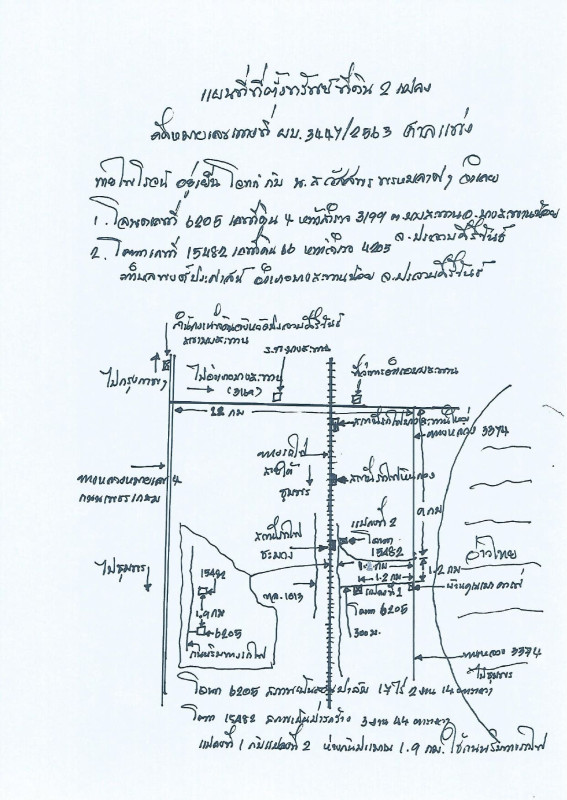 แผนที่ที่ตั้งทรัพย์ที่ดิน 2 แปลง
คดีหมายเลขแดงที่ ผบ.3447/2563 ศาลแพ่ง
นายไพโรจน์ อยู่เย็น โจทก์ กับ น.ส.
1. โฉนดเลขที่ 6205 เลขที่ดิน 4 หน้าสำรวจ 3199 ต.บางสะพาน อ.บางสะพานน้อย
จ.ประจวบคีรีขันธ์
2. โฉนดเลขที่ 15482 เลขที่ดิน 66 หน้าสำรวจ 4205
ตำบลพงศ์ประศาสน์ อำเภอบางสะพาน จ.ประจวบคีรีขันธ์
สำนักงานที่ดินจังหวัดประจวบคีรีขันธ์
สาขาบางสะพาน
ไปกรุงเทพฯ
ไปอำเภอบางสะพาน
(3169)
ร.ร.บางสะพาน
ที่ว่าการอำเภอบางสะพาน
12 กม
สถานีรถไฟบางสะพานใหญ่
ทางหลวง 3374
ทางรถไฟ
สายใต้
ชุมพร
สถานีรถไฟ
9 กม
ทางหลวงหมายเลข 4
ถนนเพชรเกษม
แปลงที่ 2
โฉนด
15482
สถานีรถไฟ
ชะม่วง
อ่าวไทย
ไปชุมพร
1.2 กม
1.2 กม
1.2 กม
15482
1.9 กม
6205
ถนนริมทางรถไฟ
1013
แปลงที่ 1
โฉนด 6205
300 ม.
ทางหลวง 3374
ไปชุมพร
โฉนด 6205 สภาพเป็นสวนปาล์ม 17 ไร่ 2 งาน 14 ตารางวา
โฉนด 15482 สภาพเป็นป่ารกร้าง 3 งาน 44 ตารางวา
แปลงที่ 1 กับแปลงที่ 2 ห่างกันประมาณ 1.9 กม. ใช้ถนนริมทางรถไฟ